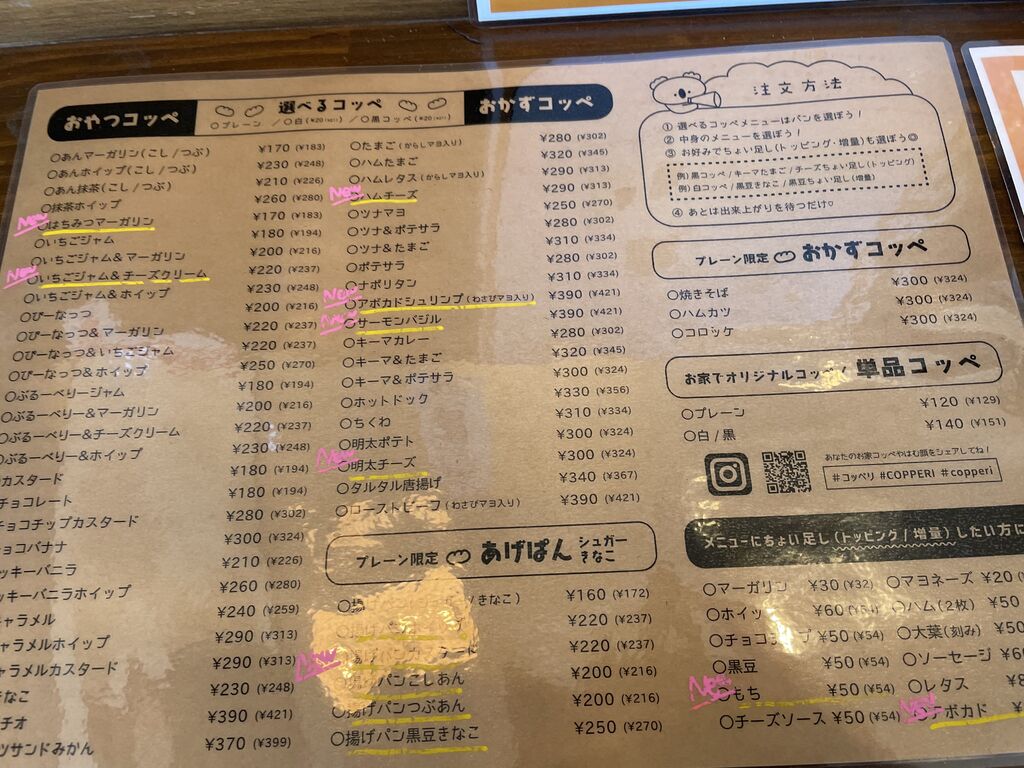 おやつコッペ
選べるコッペ
○プレーン /○白(¥20 ﾌﾟﾗｽ) /○黒コッペ(¥20 ﾌﾟﾗｽ)
おかずコッペ
○あんマーガリン(こし/つぶ) ¥170 (¥183)
○あんホイップ(こし/つぶ) ¥230 (¥248)
○あん抹茶(こし/つぶ) ¥210 (¥226)
○抹茶ホイップ ¥260 (¥280)
New ○はちみつマーガリン ¥170 (¥183)
○いちごジャム ¥180 (¥194)
○いちごジャム&マーガリン ¥200 (¥216)
New ○いちごジャム&チーズクリーム ¥220 (¥237)
○いちごジャム&ホイップ ¥230 (¥248)
○ぴーなっつ ¥200 (¥216)
○ぴーなっつ&マーガリン ¥220 (¥237)
○ぴーなっつ&いちごジャム ¥220 (¥237)
○ぴーなっつ&ホイップ ¥250 (¥270)
○ぶるーべりージャム ¥180 (¥194)
○ぶるーべりー&マーガリン ¥200 (¥216)
○ぶるーべりー&チーズクリーム ¥220 (¥237)
○ぶるーべりー&ホイップ ¥230 (¥248)
カスタード ¥180 (¥194)
チョコレート ¥180 (¥194)
チョコチップカスタード ¥280 (¥302)
ョコバナナ ¥300 (¥324)
ッキーバニラ ¥210 (¥226)
ッキーバニラホイップ ¥260 (¥280)
ャラメル ¥240 (¥259)
ャラメルホイップ ¥290 (¥313)
ャラメルカスタード ¥290 (¥313)
きなこ ¥230 (¥248)
チオ ¥390 (¥421)
ツサンドみかん ¥370 (¥399)
○たまご(からしマヨ入り) ¥280 (¥302)
○ハムたまご ¥320 (¥345)
○ハムレタス(からしマヨ入り) ¥290 (¥313)
New ○ハムチーズ ¥290 (¥313)
○ツナマヨ ¥250 (¥270)
○ツナ&ポテサラ ¥280 (¥302)
○ツナ&たまご ¥310 (¥334)
○ポテサラ ¥280 (¥302)
○ナポリタン ¥310 (¥334)
New ○アボカドシュリンプ(わさびマヨ入り) ¥390 (¥421)
New ○サーモンバジル ¥390 (¥421)
○キーマカレー ¥280 (¥302)
○キーマ&たまご ¥320 (¥345)
○キーマ&ポテサラ ¥300 (¥324)
○ホットドック ¥330 (¥356)
○ちくわ ¥310 (¥334)
○明太ポテト ¥300 (¥324)
New ○明太チーズ ¥300 (¥324)
○タルタル唐揚げ ¥340 (¥367)
○ローストビーフ(わさびマヨ入り) ¥390 (¥421)
プレーン限定 あげぱん シュガー きなこ
○揚 /きなこ) ¥160 (¥172)
¥220 (¥237)
New 揚げパンカスタード ¥220 (¥237)
揚げパンこしあん ¥200 (¥216)
○揚げパンつぶあん ¥200 (¥216)
○揚げパン黒豆きなこ ¥250 (¥270)
注文方法
① 選べるコッペメニューはパンを選ぼう!
② 中身のメニューを選ぼう!
③ お好みでちょい足し(トッピング・増量)も選ぼう◎
例) 黒コッペ / キーマたまご / チーズちょい足し(トッピング)
例) 白コッペ / 黒豆きなこ / 黒豆ちょい足し(増量)
④ あとは出来上がりを待つだけ♡
プレーン限定 おかずコッペ
○焼きそば ¥300 (¥324)
○ハムカツ ¥300 (¥324)
○コロッケ ¥300 (¥324)
お家でオリジナルコッペ! 単品コッペ
○プレーン ¥120 (¥129)
○白 / 黒 ¥140 (¥151)
あなたのお家コッペやはむ顔をシェアしてね!
#コッペリ #COPPERI #copperi
メニューにちょい足し(トッピング / 増量)したい方に
○マーガリン ¥30 (¥32) ○マヨネーズ ¥20 (
○ホイップ ¥60 (¥64) ○ハム(2枚) ¥50
○チョコチップ ¥50 (¥54) ○大葉(刻み) ¥50
○黒豆 ¥50 (¥54) ○ソーセージ ¥6
New ○もち ¥50 (¥54) ○レタス ¥8
○チーズソース ¥50 (¥54) New ○アボカド ¥